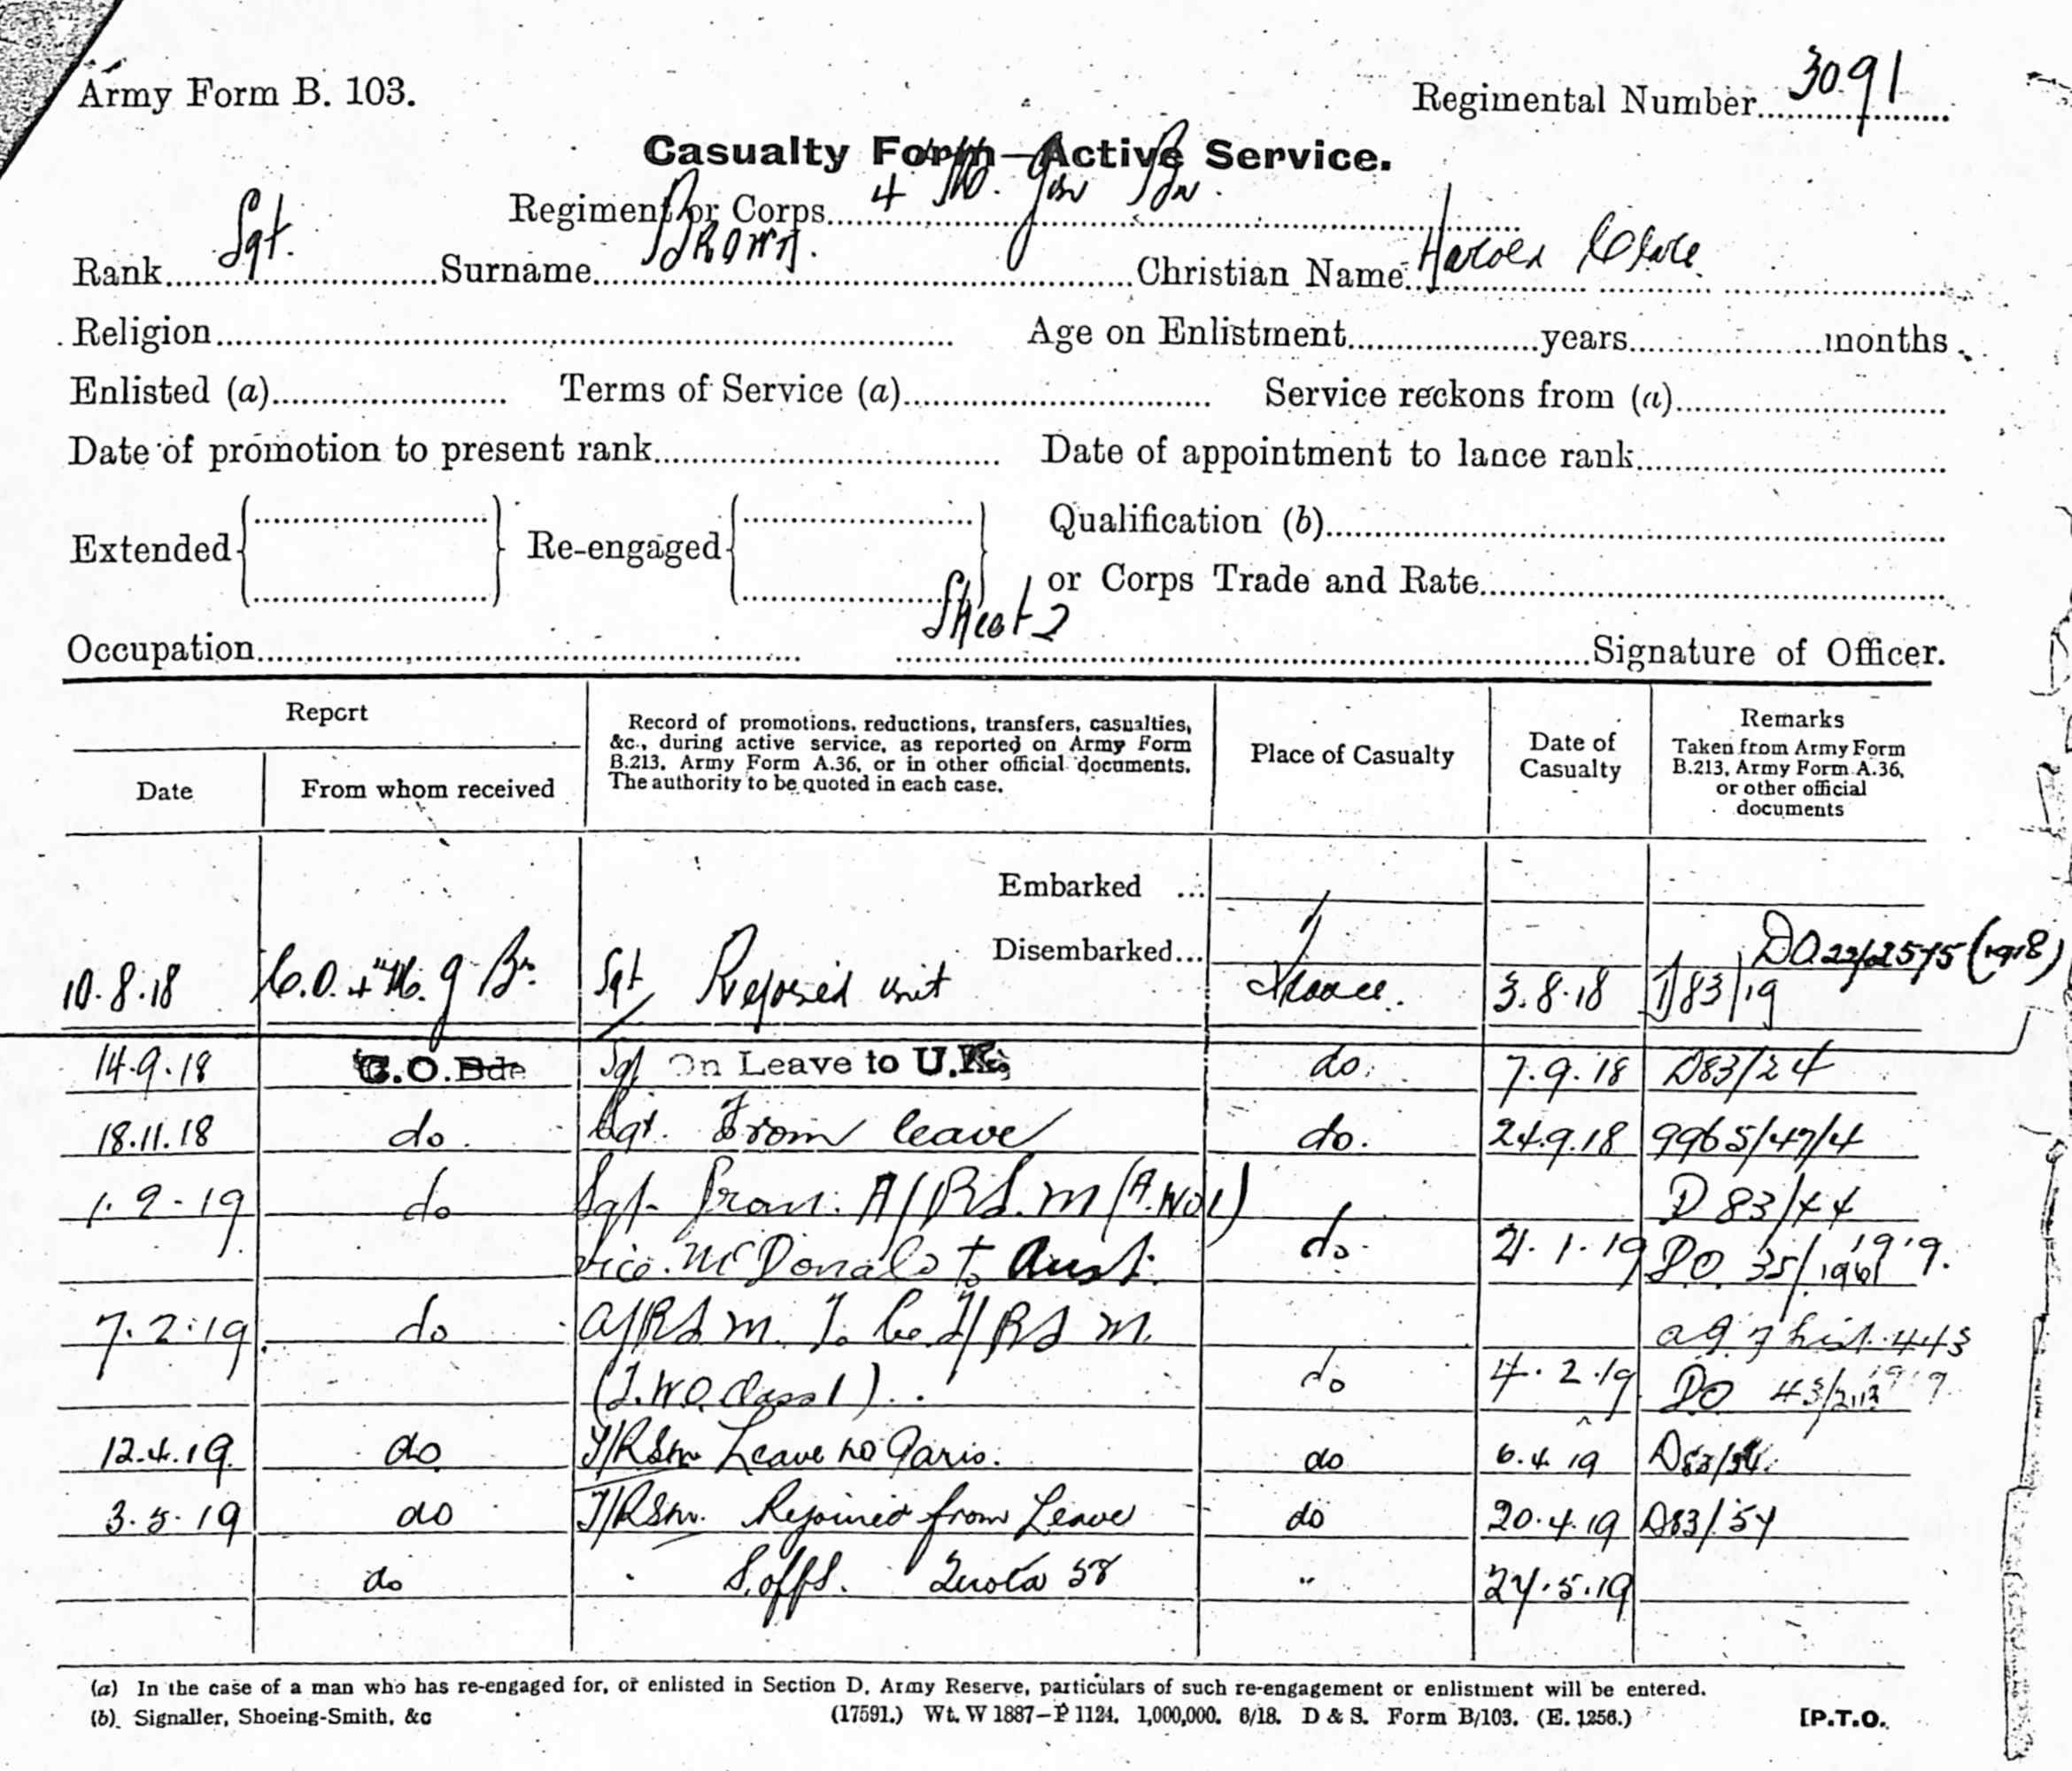 Army Form B. 103.
Regimental Number 3091
Casualty Form—Active Service.
Regiment or Corps 4 M. Gun Bn.
Rank Sgt. Surname BROWN. Christian Name Harold
Religion Age on Enlistment years months
Enlisted (a) Terms of Service (a) Service reckons from (a)
Date of promotion to present rank Date of appointment to lance rank
Extended Re-engaged Qualification (b)
or Corps Trade and Rate
Sheet 2
Occupation Signature of Officer.
Report
Date From whom received
Record of promotions, reductions, transfers, casualties, &c., during active service, as reported on Army Form B.213, Army Form A.36, or in other official documents. The authority to be quoted in each case.
Place of Casualty
Date of Casualty
Remarks
Taken from Army Form B.213, Army Form A.36, or other official documents
Embarked ...
Disembarked... DO 22/2575 (1918)
10.8.18 C.O. 4 M. G Bn. Sgt Rejoined unit France. 3.8.18 83/19
14.9.18 C.O. Bde Sgt On Leave to U.K. do. 7.9.18 D83/24
18.11.18 do. Sgt. From leave do. 24.9.18 9965/47/4
1.2.19 do Sgt. A/RS.M (A.WO1) D 83/44
vice McDonald to Aust. do. 21.1.19 DO 35/1961 1919.
7.2.19 do A/RS M. To be T/RS M. 443
(T.WO. Class 1) do 4.2.19 DO 43/ 1919
12.4.19. do T/RSM Leave to Paris. do 6.4.19
3.5.19 do T/RSM. Rejoined from Leave do 20.4.19 D83/54
do Quota 58 " 24.5.19
(a) In the case of a man who has re-engaged for, or enlisted in Section D, Army Reserve, particulars of such re-engagement or enlistment will be entered.
(b) Signaller, Shoeing-Smith, &c (17591.) Wt. W 1887—P 1124. 1,000,000. 6/18. D & S. Form B/103. (E. 1256.) [P.T.O.